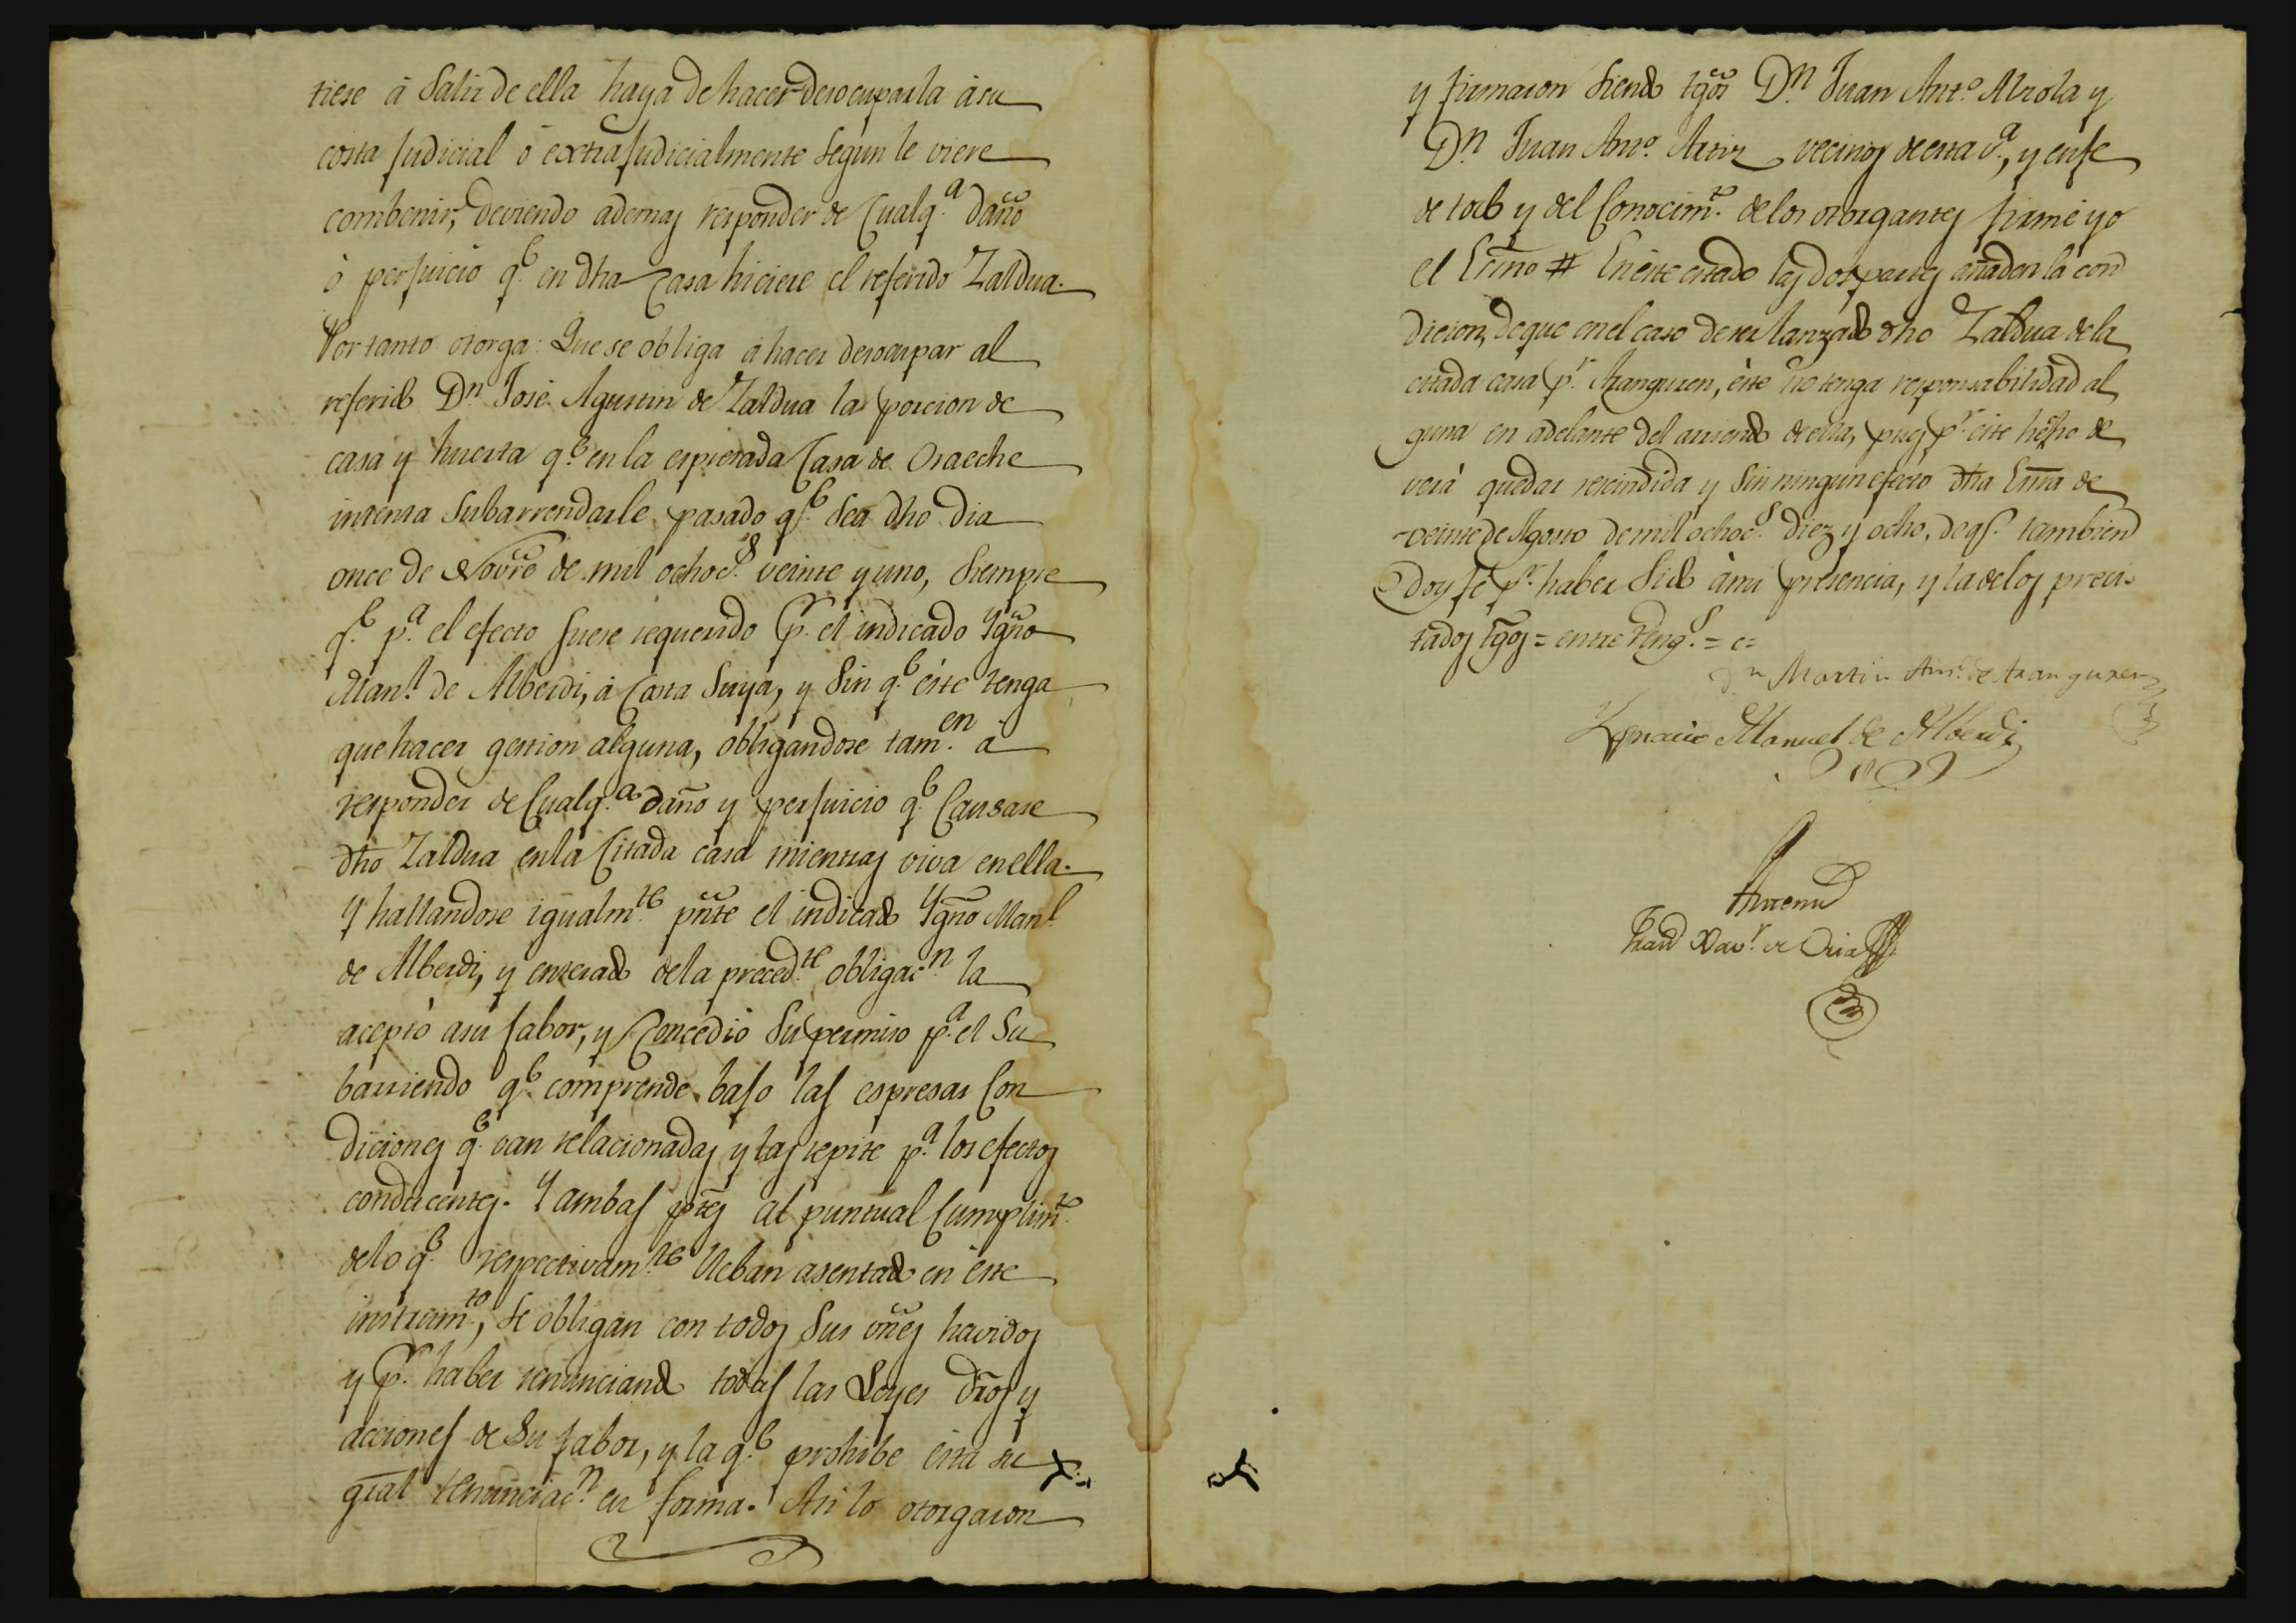 tiese á Salir de ella haya de hacer desocuparla á su
costa judicial ó extrajudicialmente segun le viere
combenir, deviendo ademas responder de Cualq.ª daño
ó perjuicio q.e en dha Casa hiciere el referido Zaldua.
Por tanto otorga: Que se obliga á hacer desocupar al
referido Dn José Agustin de Zaldua la porcion de
casa y huerta q.e en la espresada Casa de Oraeche
intenta Subarrendarle pasado q.e sea dho dia
once de Novre de mil ochoc.s veinte y uno, siempre
q.e p.a el efecto fuere requerido p.r el indicado Ygno
Man.l de Alberdi, á Costa Suya, y Sin q.e éste tenga
que hacer gestion alguna, obligandose tam.en á
responder de Cualq.a daño y perjuicio q.e Causare
dho Zaldua en la Citada casa mientras viva en ella.
Y hallandose igualm.te pnte el indicado Ygno Man.l
de Alberdi, y enterado de la preced.te obligac.n la
aceptó a su fabor, y Concedió Su permiso p.a el Su
barriendo q.e comprende bajo las espresas Con
diciones q.e van relacionadas y las repite p.a los efectos
conducentes. Y ambas ptes al puntual Cumplim.to
de lo q.e respectivam.te lleban asentado en éste
instrum.to, se obligan con todos Sus vnes havidos
y p.r haber renunciando todas las Leyes dros y
acciones de Su fabor, y la q.e prohibe esta su
gral renunciac.n en forma. Asi lo otorgaron
y firmaron Siendo tgos Dn Juan Ant.o Mrola y
Dn Juan Ant.o Artiz vecinos de esta v.a, y en fe
de todo y del Conocim.to de los otorgantes firmé yo
el Esno # En éste estado las dos partes añaden la con
dicion, de que en el caso de ser lanzado dho Zaldua de la
citada casa p.r Aranguren, éste no tenga responsabilidad al
guna en adelante del arriendo de ella, pues p.r este hecho de
verá quedar rescindida y Sin ningun efecto dha Esra de
veinte de Agosto de mil ochoc.s diez y ocho, de q.e tambien
doy fe p.r haber Sido á mi presencia, y la de los preci
tados tgos = entre Reng.s = e =
Dn Martin Ant.o de Aranguren
Ygnacio Manuel de Alberdi
Antemi
Fran.co Xav.r de Oria